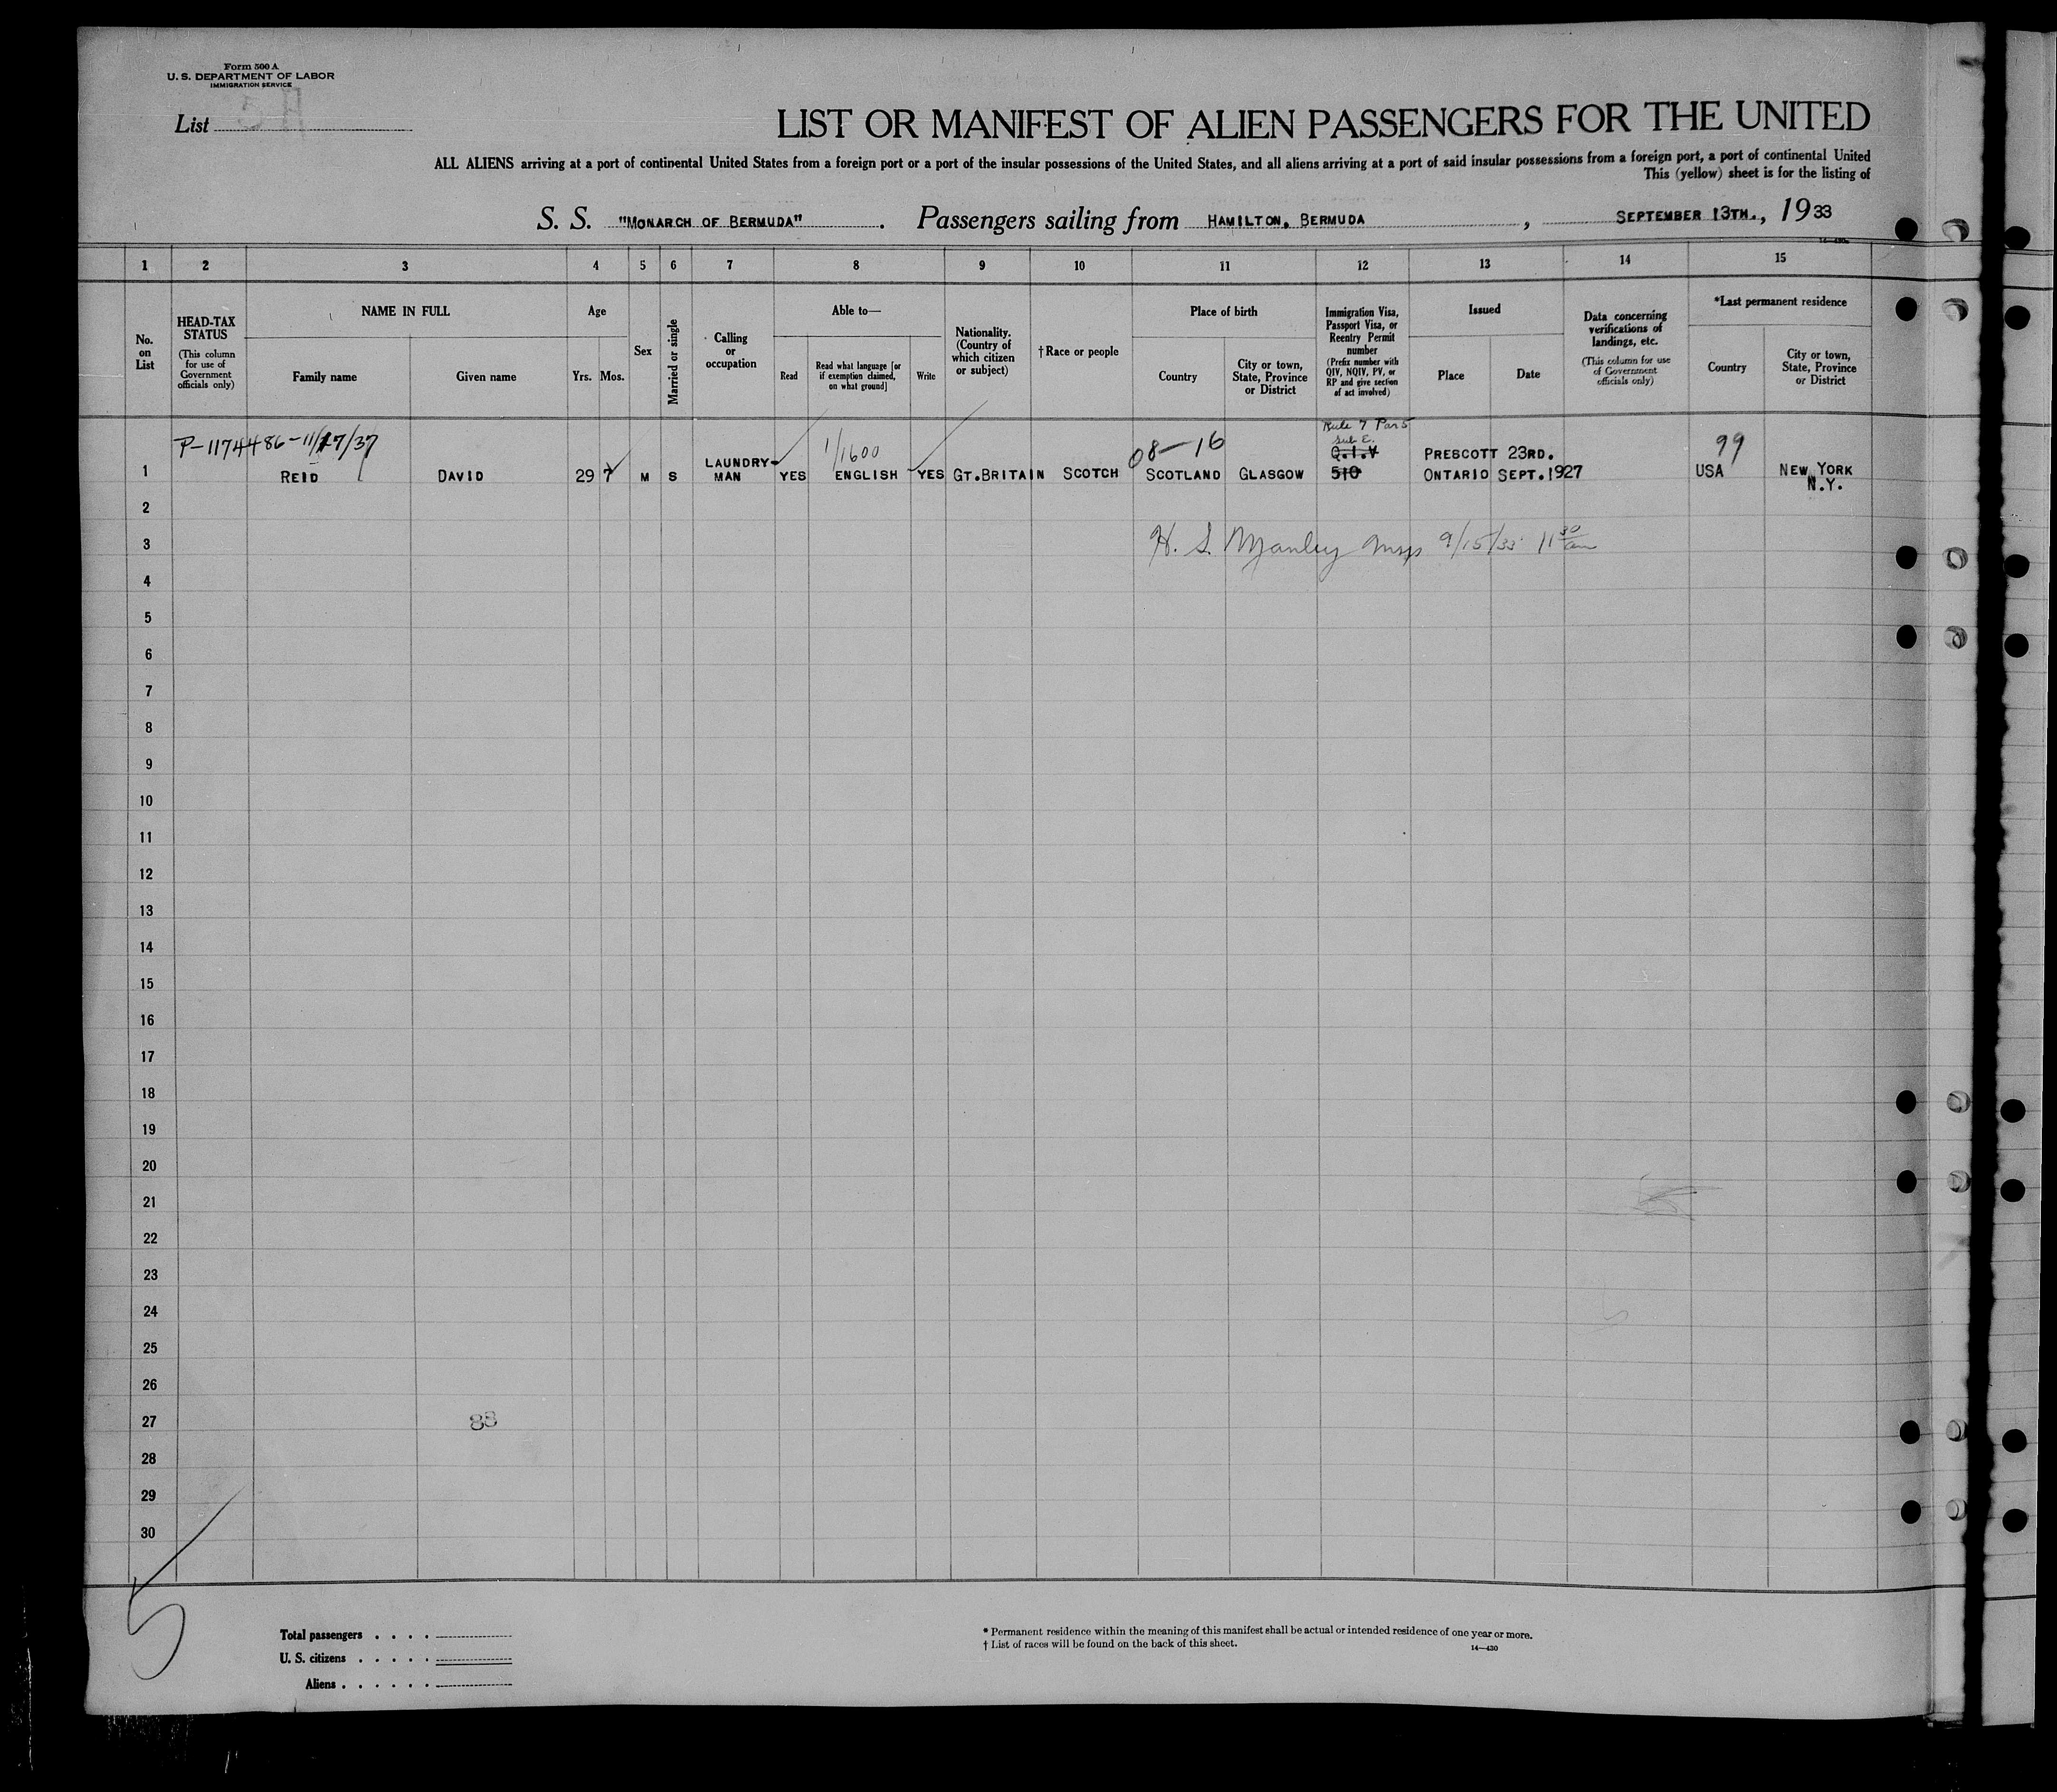 Form 500 A
U. S. DEPARTMENT OF LABOR
IMMIGRATION SERVICE
List
LIST OR MANIFEST OF ALIEN PASSENGERS FOR THE UNITED
ALL ALIENS arriving at a port of continental United States from a foreign port or a port of the insular possessions of the United States, and all aliens arriving at a port of said insular possessions from a foreign port, a port of continental United
This (yellow) sheet is for the listing of
S. S. "MONARCH OF BERMUDA". Passengers sailing from HAMILTON, BERMUDA, SEPTEMBER 13TH., 1933
1 2 3 4 5 6 7 8 9 10 11 12 13 14 15
No. on List
HEAD-TAX STATUS
(This column for use of Government officials only)
NAME IN FULL
Family name
Given name
Age
Yrs. Mos.
Sex
Married or single
Calling or occupation
Able to—
Read
Read what language [or if exemption claimed, on what ground]
Write
Nationality. (Country of which citizen or subject)
†Race or people
Place of birth
Country
City or town, State, Province or District
Immigration Visa, Passport Visa, or Reentry Permit number
(Prefix number with QIV, NQIV, PV, or RP and give section of act involved)
Issued
Place
Date
Data concerning verifications of landings, etc.
(This column for use of Government officials only)
*Last permanent residence
Country
City or town, State, Province or District
P-1174486-11/17/37 1/1600 08-16 Rule 7 Par 5 Sub E. 99
Q.I.V PRESCOTT 23RD.
1 REID DAVID 29 7 M S LAUNDRY-MAN YES ENGLISH YES GT.BRITAIN SCOTCH SCOTLAND GLASGOW 510 ONTARIO SEPT.1927 USA NEW YORK N.Y.
2
3 H. S. Manley Insp 9/15/33 11 30 am
4
5
6
7
8
9
10
11
12
13
14
15
16
17
18
19
20
21
22
23
24
25
26
27 88
28
29
30
5
Total passengers
U. S. citizens
Aliens
* Permanent residence within the meaning of this manifest shall be actual or intended residence of one year or more.
† List of races will be found on the back of this sheet.
14—430